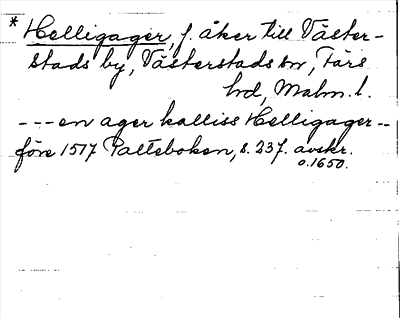 * Helligager, f. åker till Väster-
stads by, Västerstads sn, Färs
hd, Malm. l.
--- en ager kalliss Helligager --
före 1517 Palteboken, s. 237. avskr.
o. 1650.